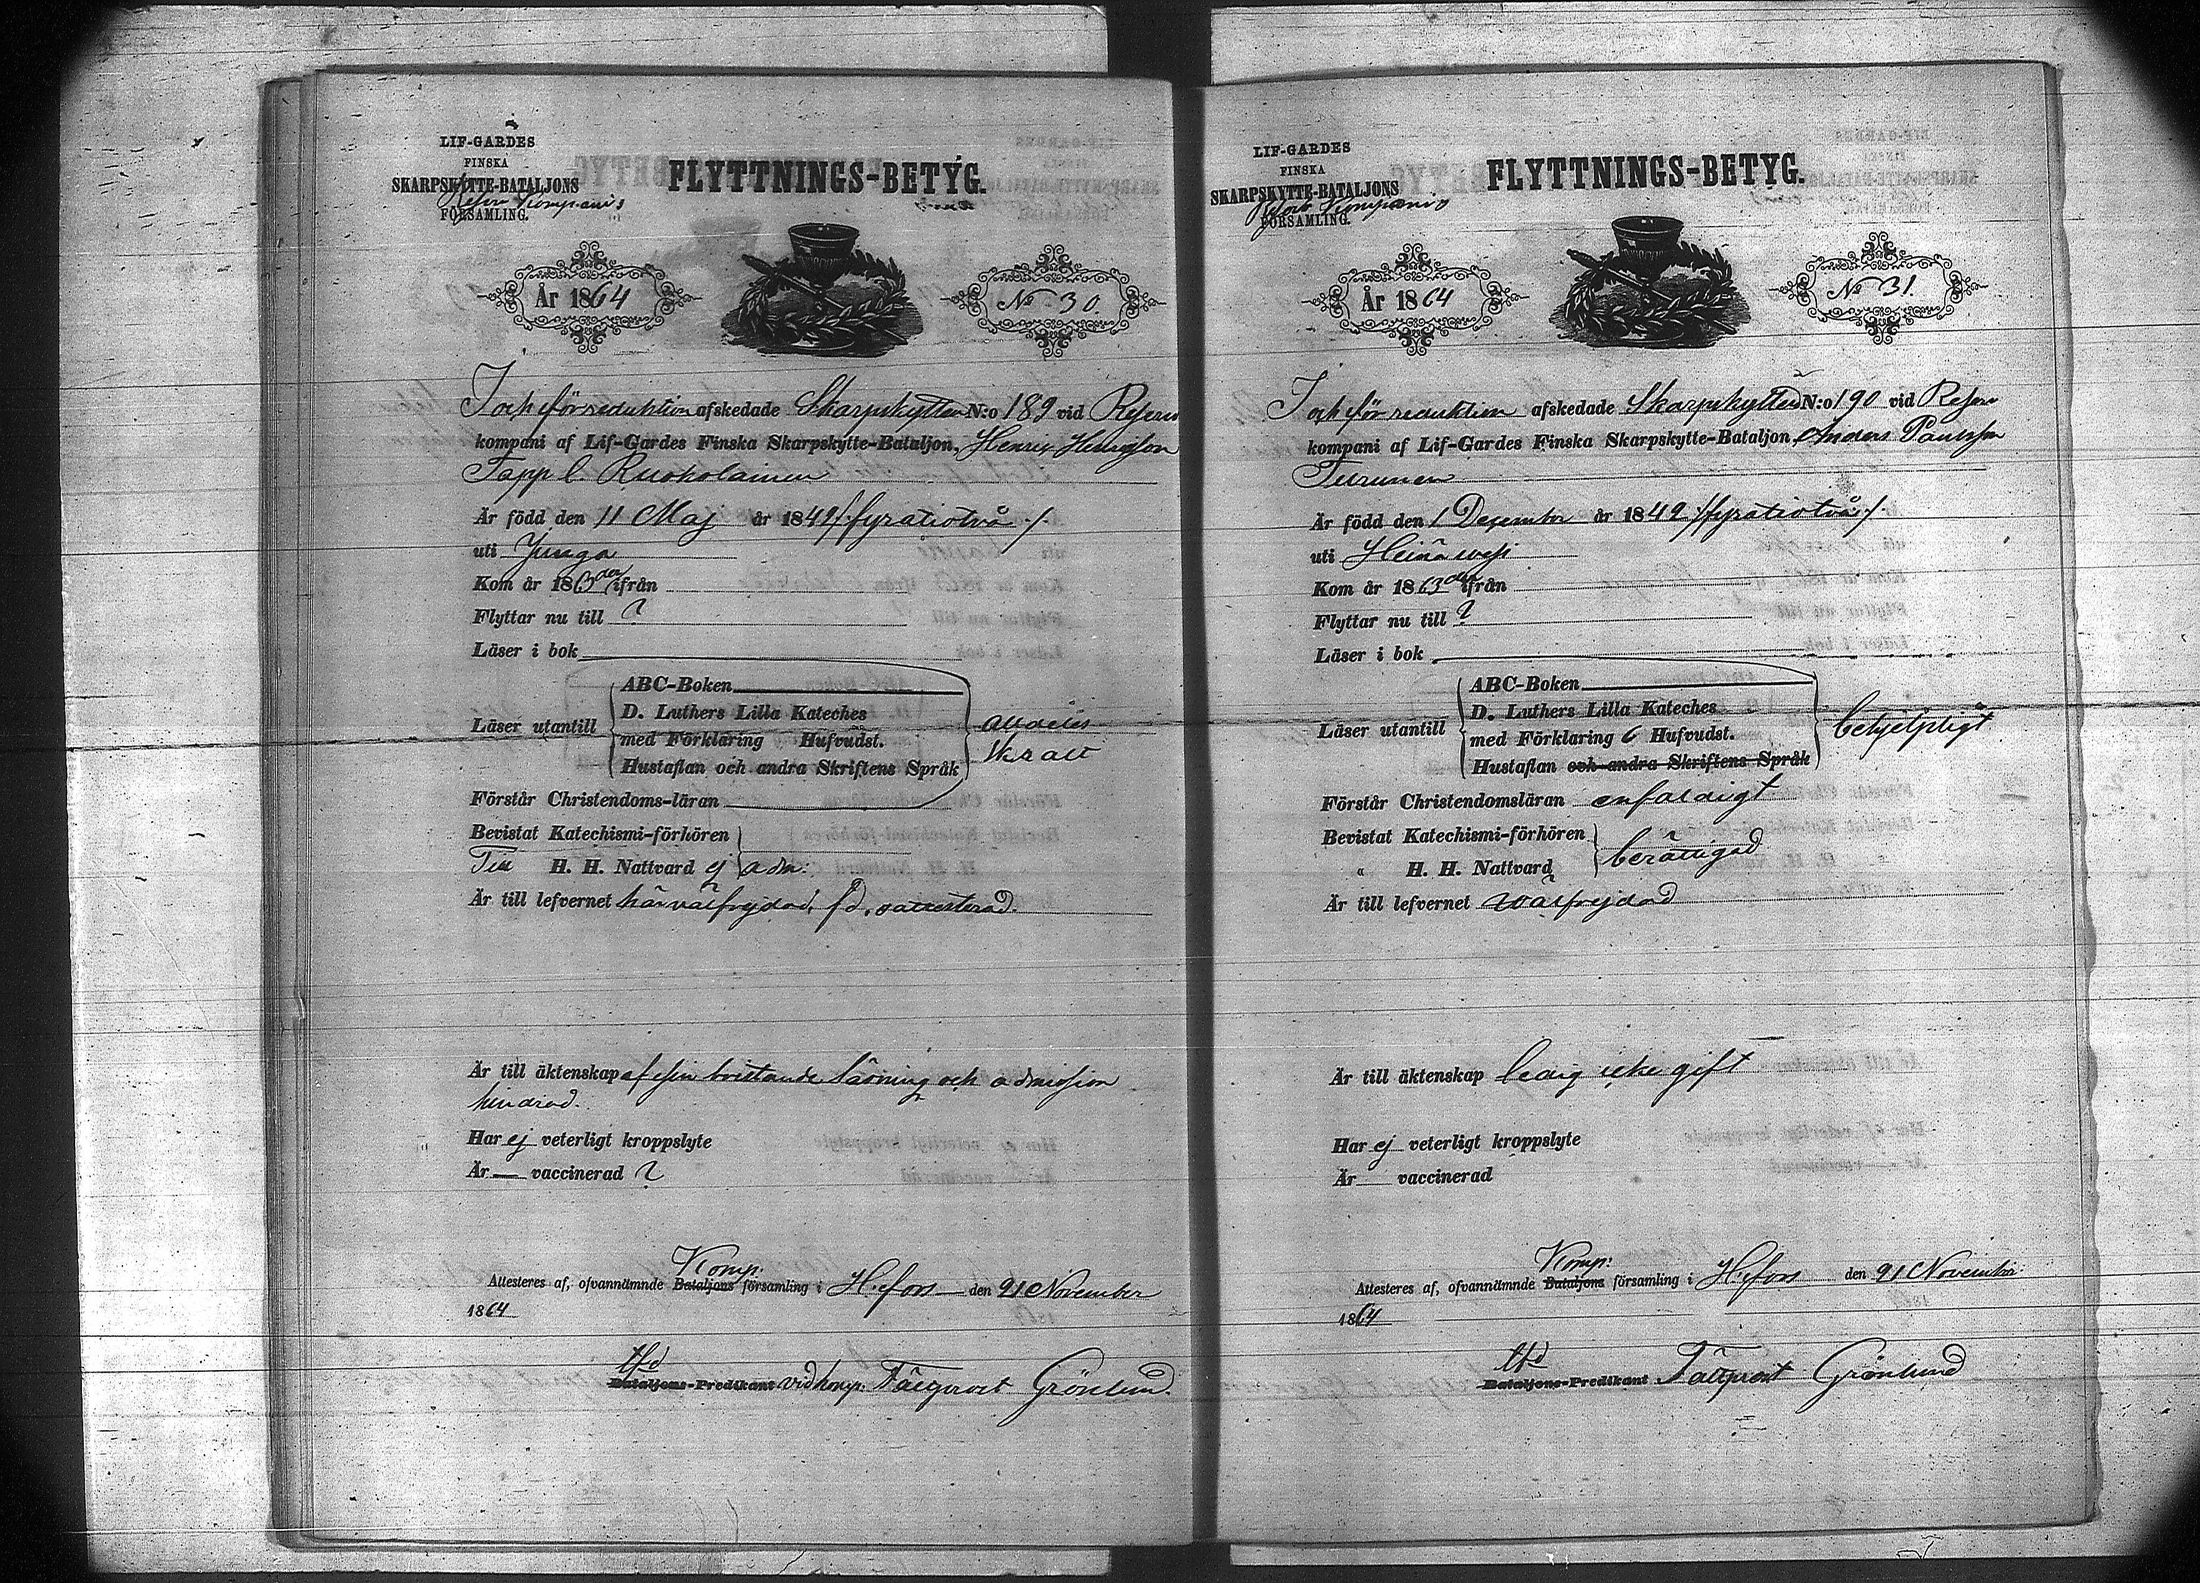 LIF-GARDES
FINSKA
SKARPSKYTTE-BATALJONS
Reserv Kompanis
FÖRSAMLING.
FLYTTNINGS-BETYG.
År 1864
No 30.
I och för reduktion afskedade Skarpskytten N:o 189 vid Reserv
kompani af Lif-Gardes Finska Skarpskytte-Bataljon, Henrik
Tapp l. Ruokolainen
Är född den 11 Maj år 1842 /:fyratiotvå:/
uti Juuga
Kom år 1863 ifrån
Flyttar nu till ?
Läser i bok
Läser utantill
ABC-Boken
D. Luthers Lilla Kateches
med Förklaring Hufvudst.
Hustaflan och andra Skriftens Språk
alldeles
skralt
Förstår Christendoms-läran
Bevistat Katechismi-förhören
Till H. H. Nattvard ej adm:
Är till lefvernet här välfrejdad,
Är till äktenskap af sin bristande läsning och admission
hindrad.
Har ej veterligt kroppslyte
Är — vaccinerad ?
Komp:
Attesteres af, ofvannämnde Bataljons församling i H:fors den 21 November
1864
tfd
Bataljons-Predikant vid komp: Fältprost Grönlund.
LIF-GARDES
FINSKA
SKARPSKYTTE-BATALJONS
Reserv Kompanis
FÖRSAMLING.
FLYTTNINGS-BETYG.
År 1864
No 31.
I och för reduktion afskedade Skarpskytten N:o 190 vid Reserv
kompani af Lif-Gardes Finska Skarpskytte-Bataljon Anders Paulsson
Turunen
Är född den 1 December år 1842 /:fyratiotvå:/
uti Heinäwesi
Kom år 1863 ifrån
Flyttar nu till ?
Läser i bok
Läser utantill
ABC-Boken
D. Luthers Lilla Kateches
med Förklaring 6 Hufvudst.
Hustaflan och andra Skriftens Språk
behjelpligt
Förstår Christendomsläran enfaldigt
Bevistat Katechismi-förhören
" H. H. Nattvard
berättigad
Är till lefvernet wälfrejdad
Är till äktenskap ledig icke gift
Har ej veterligt kroppslyte
Är vaccinerad
Komp:
Attesteres af, ofvannämnde Bataljons församling i H:fors den 21 November
1864
tfd
Bataljons-Predikant Fältprost Grönlund